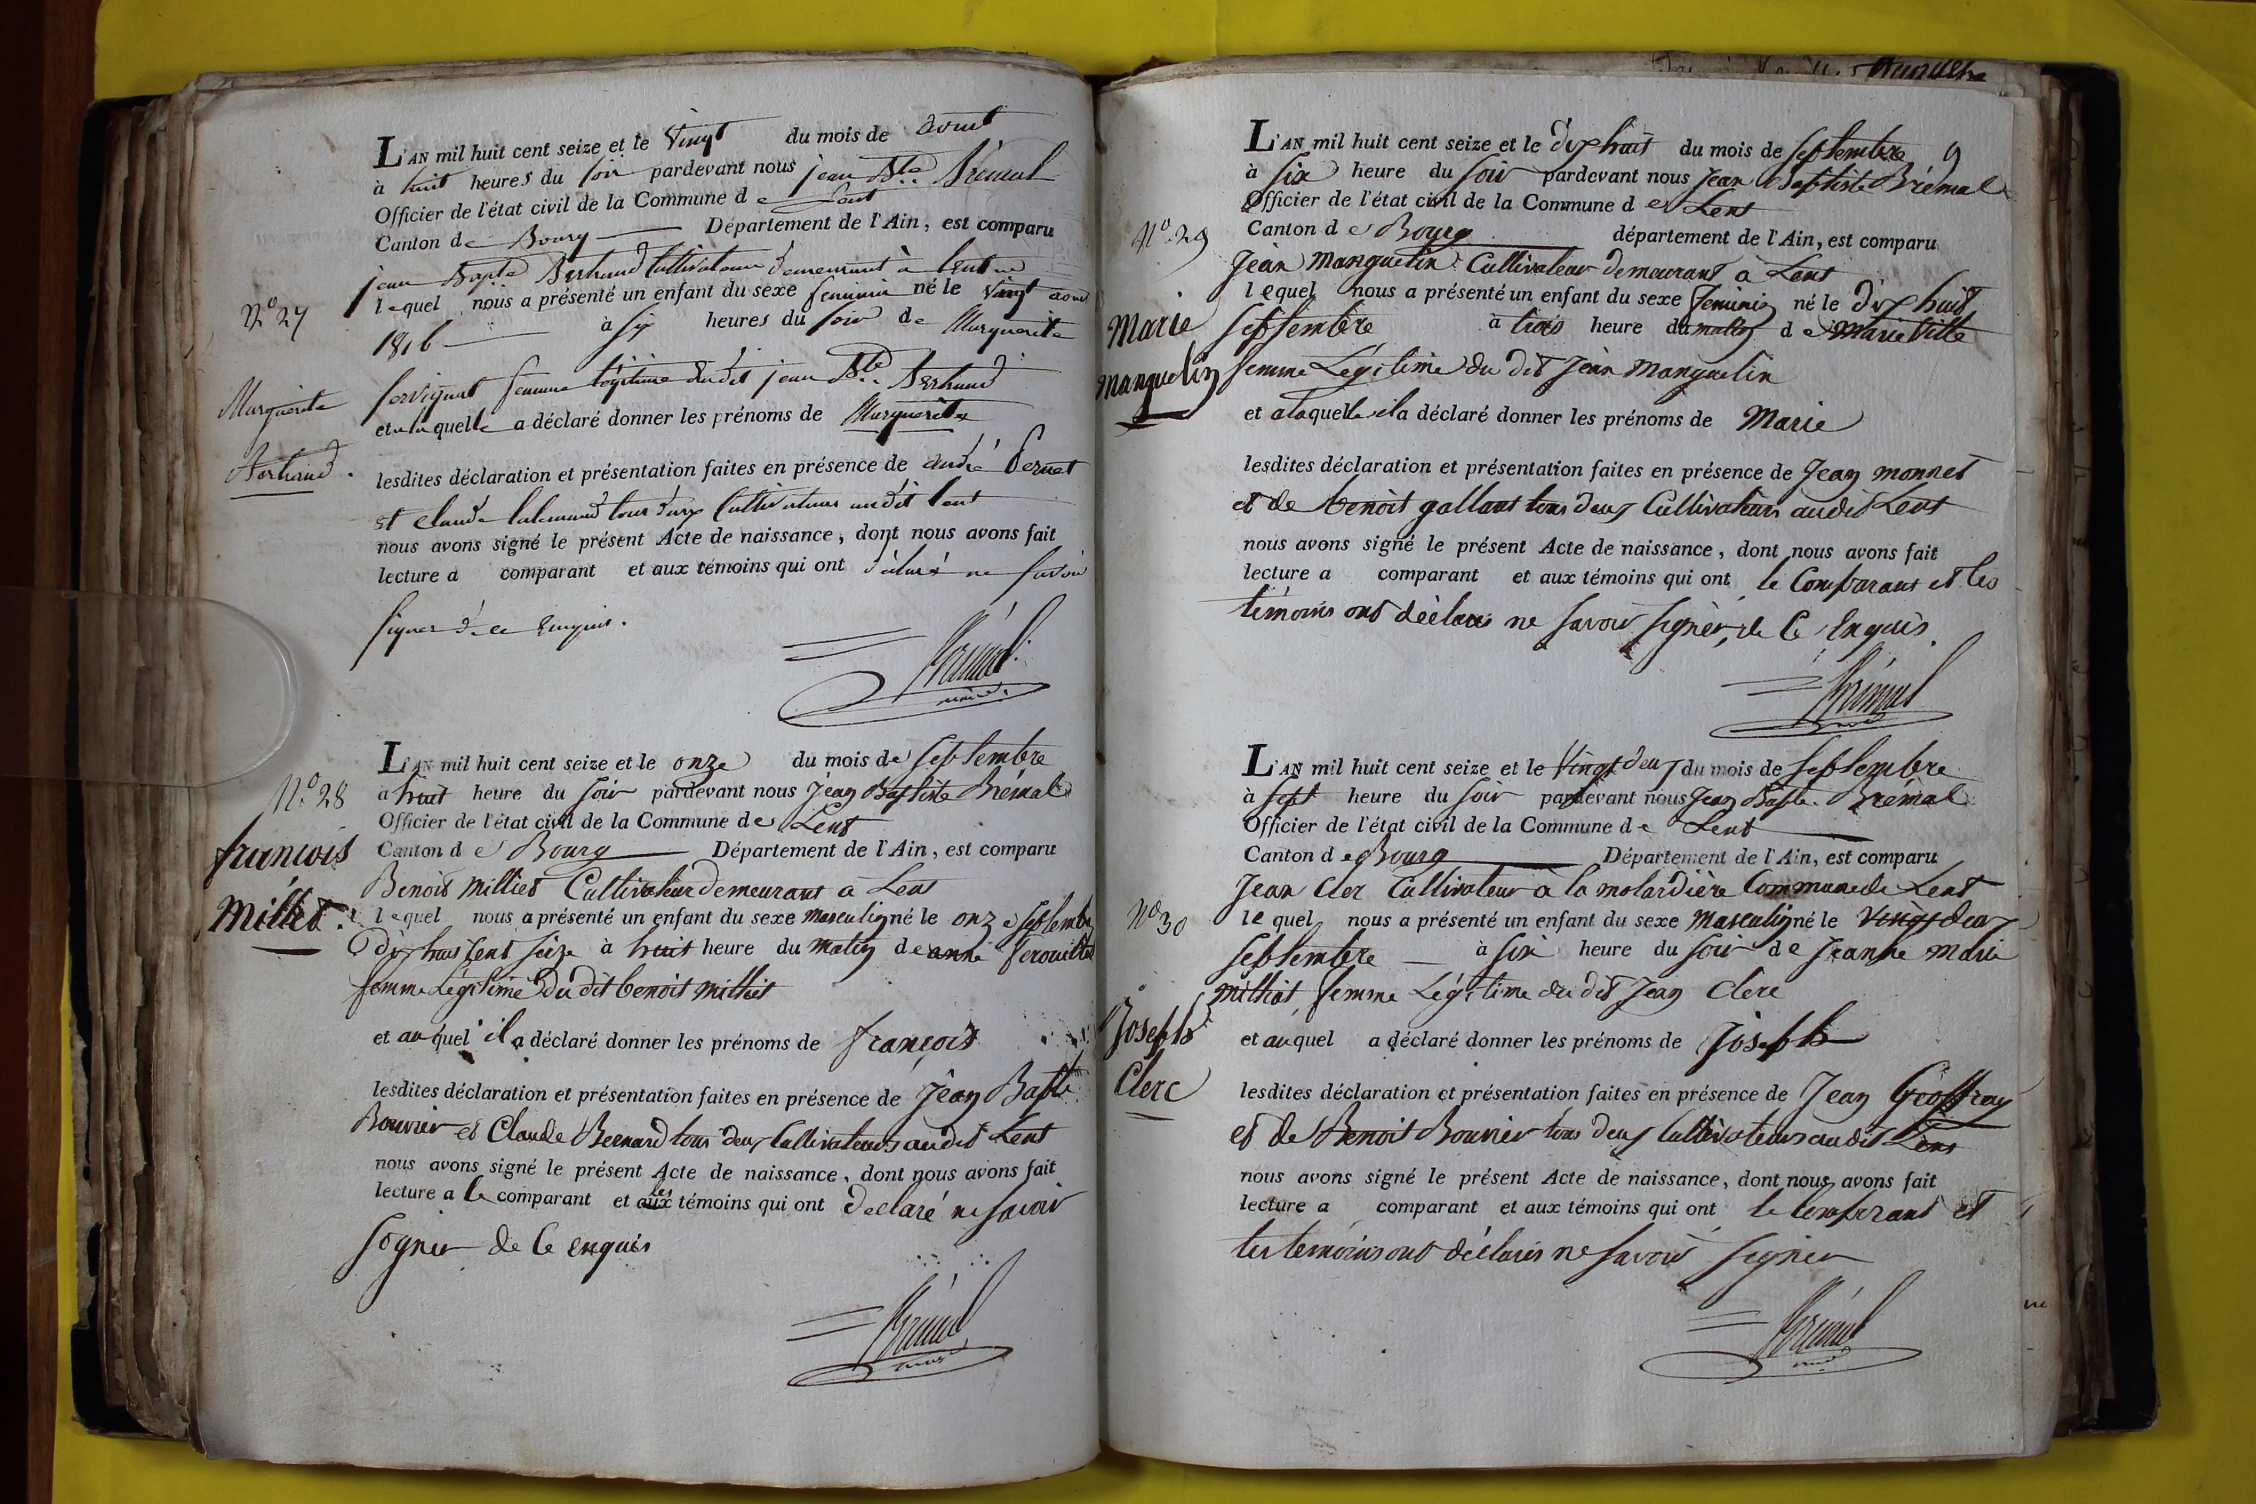 L'AN mil huit cent seize et le vingt du mois de aout
à huit heures du soir pardevant nous jean Bte Brémal
Officier de l'état civil de la Commune de Lent
Canton de Bourg Département de l'Ain, est comparu
jean Bapte Berthaud Cultivateur demeurant à Lent
lequel nous a présenté un enfant du sexe feminin né le vingt aout
N.o 27
1816 à six heures du soir de Marguerite
femme légitime du dit jean Bte Berthaud
Marguerite
et a la quelle a déclaré donner les prénoms de Marguerite
Berthaud.
lesdites déclaration et présentation faites en présence de andré
et claude lalemand tous deux Cultivateurs audit Lent
nous avons signé le présent Acte de naissance, dont nous avons fait
lecture a comparant et aux témoins qui ont déclaré ne savoir
signer de ce enquis.
Brémal
maire
L'AN mil huit cent seize et le onze du mois de Septembre
N.o 28
à huit heure du soir pardevant nous Jean Baptiste Brémal
Officier de l'état civil de la Commune de Lent
françois
Canton de Bourg Département de l'Ain, est comparu
Benoit Milliet Cultivateur demeurant a Lent
Milliet.
lequel nous a présenté un enfant du sexe masculin né le onze septembre
dix huit Cent seize à huit heure du matin de anne ferouillet
femme Légitime du dit benoit Milliet
et au quel il a déclaré donner les prénoms de françois
lesdites déclaration et présentation faites en présence de Jean Bapte
Bouvier et Claude Bernard tous deux Cultivateurs audit Lent
nous avons signé le présent Acte de naissance, dont nous avons fait
les
lecture a le comparant et aux témoins qui ont declaré ne savoir
signer de Ce enquis
Brémal
maire
L'AN mil huit cent seize et le dix huit du mois de Septembre 9
à six heure du soir pardevant nous Jean Baptiste Brémal
Officier de l'état civil de la Commune de Lent
N.o 29
Canton de Bourg département de l'Ain, est comparu
Jean Manguelin Cultivateur demeurant a Lent
lequel nous a présenté un enfant du sexe feminin né le dix huit
Marie
Septembre à trois heure du matin de Marie
Manguelin
femme Légitime du dit Jean Manguelin
et a laquelle il a déclaré donner les prénoms de Marie
lesdites déclaration et présentation faites en présence de Jean monnet
et de benoit gallant tous deux Cultivateurs audit Lent
nous avons signé le présent Acte de naissance, dont nous avons fait
lecture a comparant et aux témoins qui ont le Comparant et les
témoins ont déclaré ne savoir signer, de Ce Enquis.
Brémal
maire
L'AN mil huit cent seize et le Vingt deux du mois de Septembre
à sept heure du soir pardevant nous Jean Bapte. Brémal
Officier de l'état civil de la Commune de Lent
Canton de Bourg Département de l'Ain, est comparu
Jean Cler Cultivateur à la molardière Commune de Lent
N.o 30
lequel nous a présenté un enfant du sexe masculin né le Vingt deux
Septembre à six heure du soir de Jeanne Marie
Milliat femme Légitime du dit Jean Clerc
Joseph
et au quel a déclaré donner les prénoms de Joseph
Clerc
lesdites déclaration et présentation faites en présence de Jean Geoffray
et de Benoit Bouvier tous deux Cultivateurs audit Lent
nous avons signé le présent Acte de naissance, dont nous avons fait
lecture a comparant et aux témoins qui ont le Comparant et
les temoins ont déclarés ne savoir signer
Brémal
maire